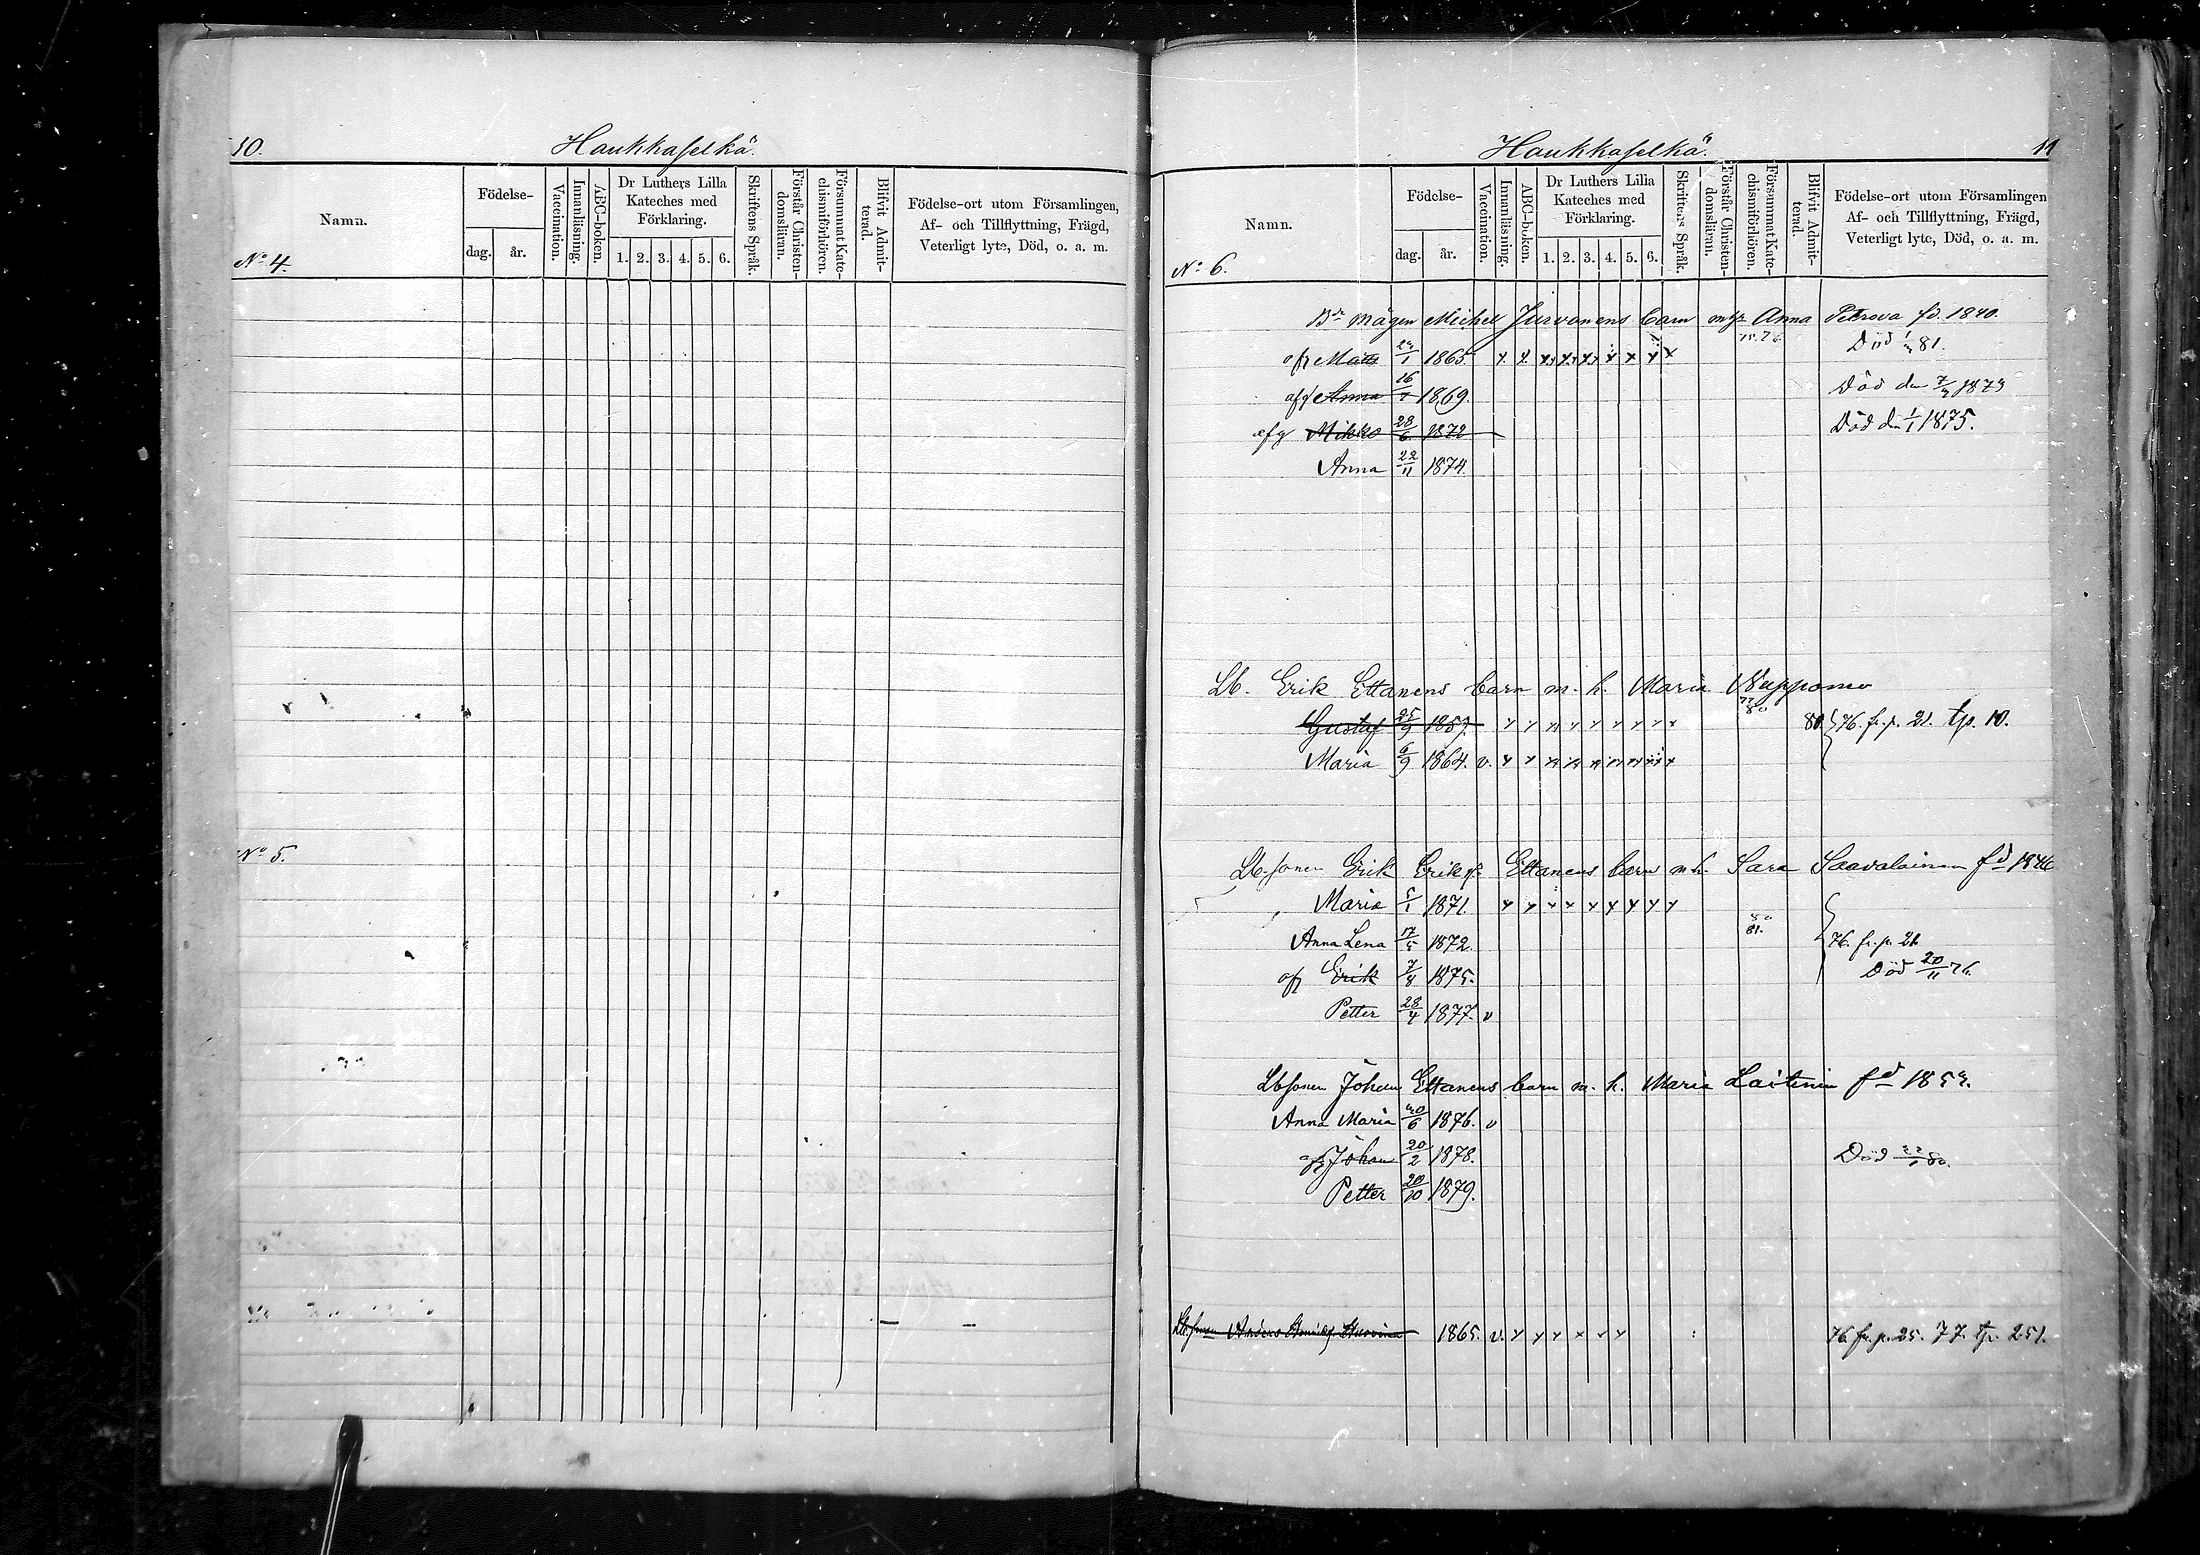 10.
Haukkaselkä.
Namn.
Födelse-
dag.
år.
Vaccination.
Innanläsning.
ABC-boken.
Dr Luthers Lilla
Kateches med
Förklaring.
1. 2. 3. 4. 5. 6.
Skriftens Språk.
Förstår Christen-
domsläran.
Försummat Kate-
chismiförhören.
Blifvit Admit-
terad.
Födelse-ort utom Församlingen,
Af- och Tillflyttning, Frägd,
Veterligt lyte, Död, o. a. m.
No 4.
No 5.
Haukkaselkä.
11
Namn.
Födelse-
dag.
år.
Vaccination.
Innanläsning.
ABC-boken.
Dr Luthers Lilla
Kateches med
Förklaring.
1. 2. 3. 4. 5. 6.
Skriftens Språk.
Förstår Christen-
domsläran.
Försummat Kate-
chismiförhören.
Blifvit Admit-
terad.
Födelse-ort utom Församlingen
Af- och Tillflyttning, Frägd,
Veterligt lyte, Död, o. a. m.
No 6.
Bdr mågen Michel Jurvonens barn Anna Petrova fd. 1840.
Mats 1865 Död 81.
afg Anna 16 1869. Död den 1873
afg Mikko 28/6 1872 Död d 1/1 1875.
Anna 22/11 1874.
Lb. Erik Ettanens barn m. h. Maria
Gustaf 25/9 1857. 80 76. fr. p. 21. tp. 10.
Maria 6/9 1864. v.
Lb.sonen Erik Eriks. Ettanens barn m h. Sara Saavalainen fd 1846
Maria 5/1 1871.
80
81.
Anna Lena 17/5 1872. 76. fr. p. 21.
afg Erik 7/8 1875. Död 20/11 76.
Petter 28/4 1877. v
Lbsonen Johan Ettanens barn m. h. Maria Laitinen fd
Anna Maria /6 1876. v
afg Johan 20/2 1878. Död 80.
Petter 20/10 1879.
Anders 1865. v. 76 fr. p. 25. 77. tp. 251.